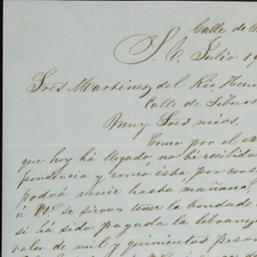 Calle de
S. C. Julio 19
Sres Martinez del Rio Her
Calle de
Muy Sres mios.
Como por el
que hoy ha llegado, no hé recibido
pondencia y como esta por
podrá venir hasta mañana,
á VV. se sirvan tener la bondad
si há sido pagada la libranza
valor de mil y quinientos pesos